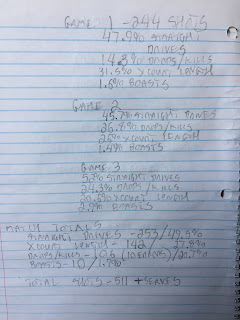 GAME 1 - 244 SHOTS
47.9% STRAIGHT
DRIVES
14.3% DROPS/KILLS
31.5% XCOURT LENGTH
1.6% BOASTS
GAME 2
STRAIGHT DRIVES
26.8% DROPS/KILLS
25% XCOURT LENGTH
BOASTS
GAME 3
52% STRAIGHT DRIVES
24.3% DROPS/KILLS
20.6% XCOURT LENGTH
BOASTS
MATCH TOTALS
STRAIGHT DRIVES - 253/49.5%
XCOURT LENGTH - 142/27.8%
DROPS/KILLS - 106 /20.7%
BOASTS - 10/1.9%
TOTAL SHOTS - 511 + SERVES